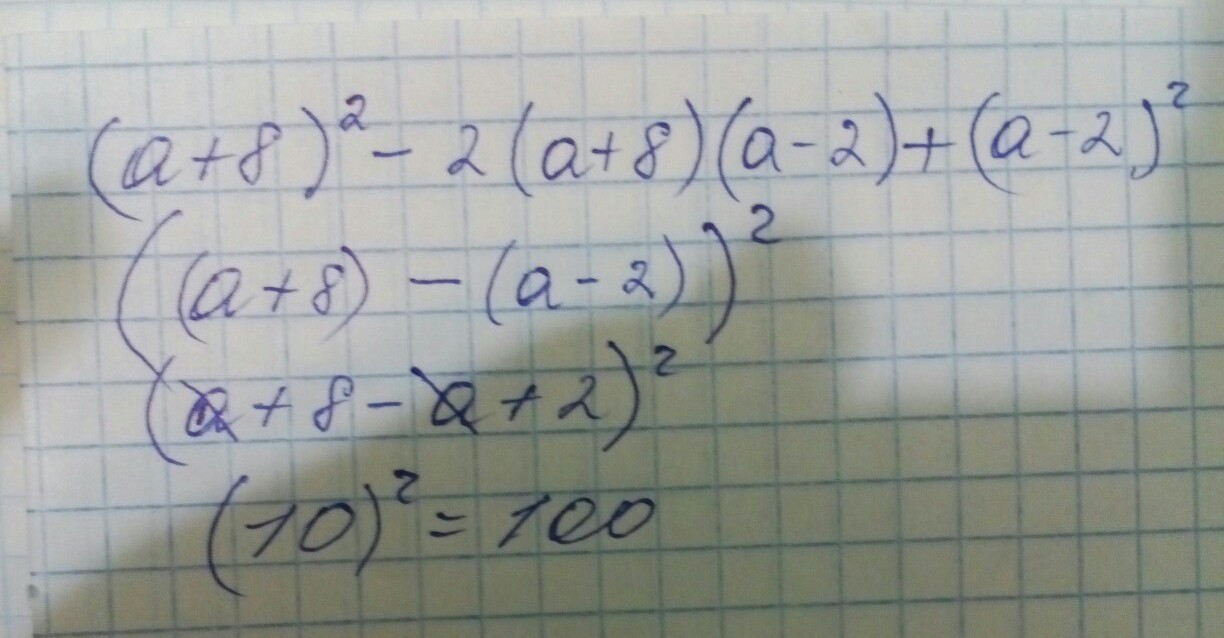 (a+8)² - 2(a+8)(a-2)+(a-2)²
((a+8) - (a-2))²
(a+8-a+2)²
(10)² = 100